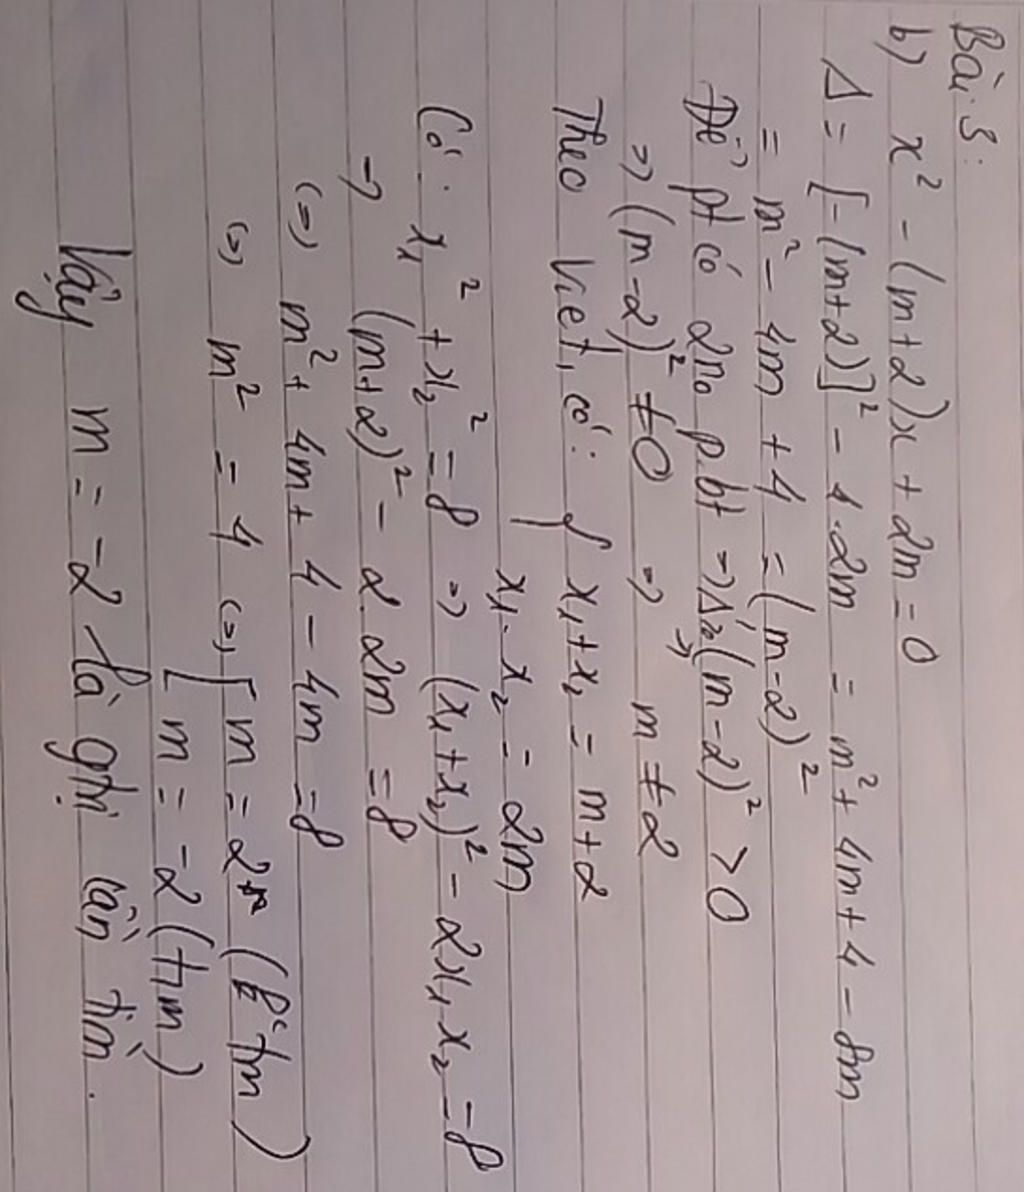 Bài 3:
b) x² - (m+2)x + 2m = 0
Δ = [-(m+2)]² - 4.2m = m² + 4m + 4 - 8m
= m² - 4m + 4 = (m-2)²
Để pt có 2no pbt => Δ (m-2)² > 0
=> (m-2)² ≠ 0 => m ≠ 2
Theo Viet, có: { x₁+x₂ = m+2
x₁.x₂ = 2m
Có: x₁² + x₂² = 8 => (x₁+x₂)² - 2x₁x₂ = 8
-> (m+2)² - 2.2m = 8
(=) m² + 4m + 4 - 4m = 8
(=) m² = 4 (=) [ m = 2 (k tm)
[ m = -2 (tm)
Vậy m = -2 là gtrị cần tìm.